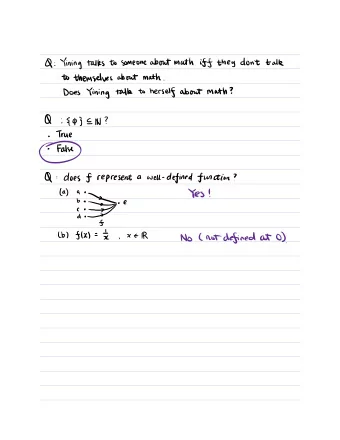 Q: Yining talks to someone about math iff they don't talk
to themselves about math.
Does Yining talk to herself about math?
Q : {φ} ⊆ ℕ ?
· True
· False
Q : does f represent a well-defined function?
(a) a b c d e f Yes!
(b) f(x) = 1/x , x ∈ ℝ No (not defined at 0)